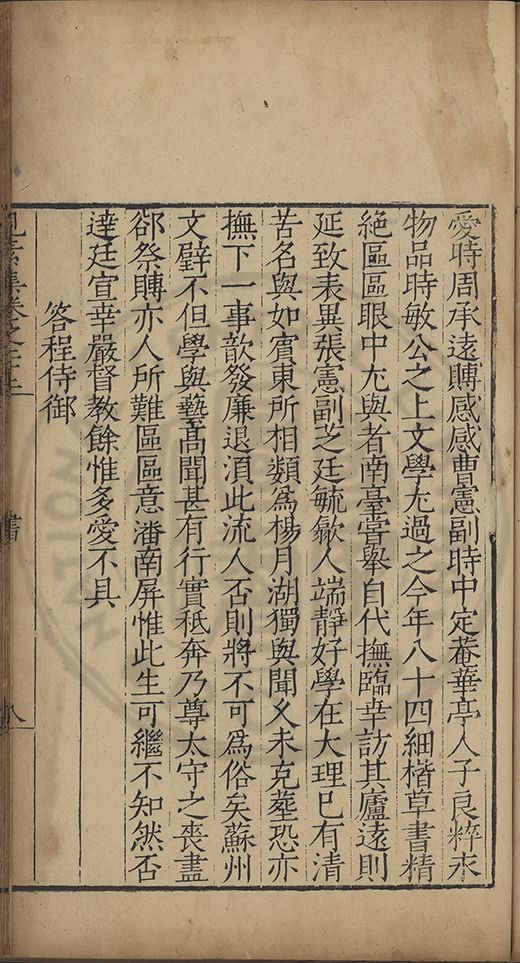 愛時周承遠賻感感曹憲副時中定菴華亭人子良粹末
物品時敏公之上文學尢過之今年八十四細楷草書精
絶區區眼中尢與者南臺嘗舉自代撫臨幸訪其廬遠則
延致表異張憲副芝廷毓歙人端靜好學在大理已有清
苦名與如賓東所相類爲楊月湖獨與聞父未克塟恐亦
撫下一事歆發廉退湏此流人否則將不可爲俗矣蘇州
文璧不但學與藝髙聞甚有行實秪奔乃尊太守之喪盡
郤祭賻亦人所難區區意潘南屏惟此生可繼不知然否
逹廷宣幸嚴督教餘惟多愛不具
答程侍御
書
八